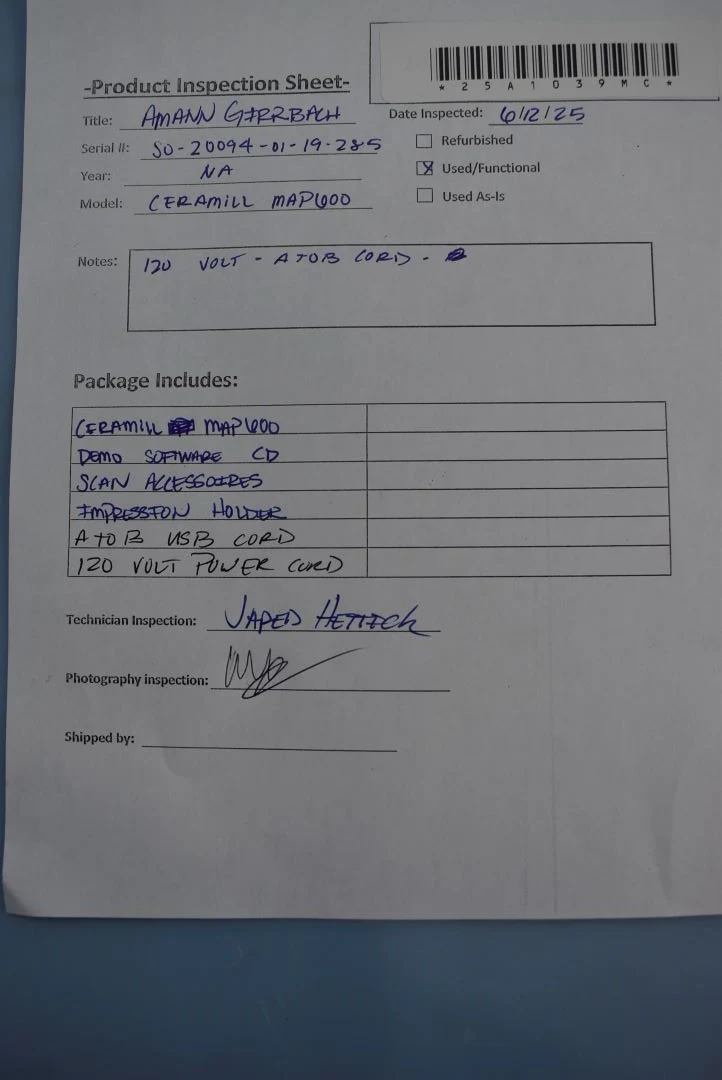 * 2 5 A 1 0 3 9 M C *
-Product Inspection Sheet-
Title: AMANN GIRRBACH
Date Inspected: 6/12/25
Serial #: SO-20094-01-19-285
Refurbished
Year: NA
X Used/Functional
Model: CERAMILL MAP600
Used As-Is
Notes: 120 VOLT - A TO B CORD -
Package Includes:
CERAMILL MAP600
DEMO SOFTWARE CD
SCAN ACCESSOIRES
IMPRESSION HOLDER
A TO B USB CORD
120 VOLT POWER CORD
Technician Inspection: JARED HETTICK
Photography inspection:
Shipped by: